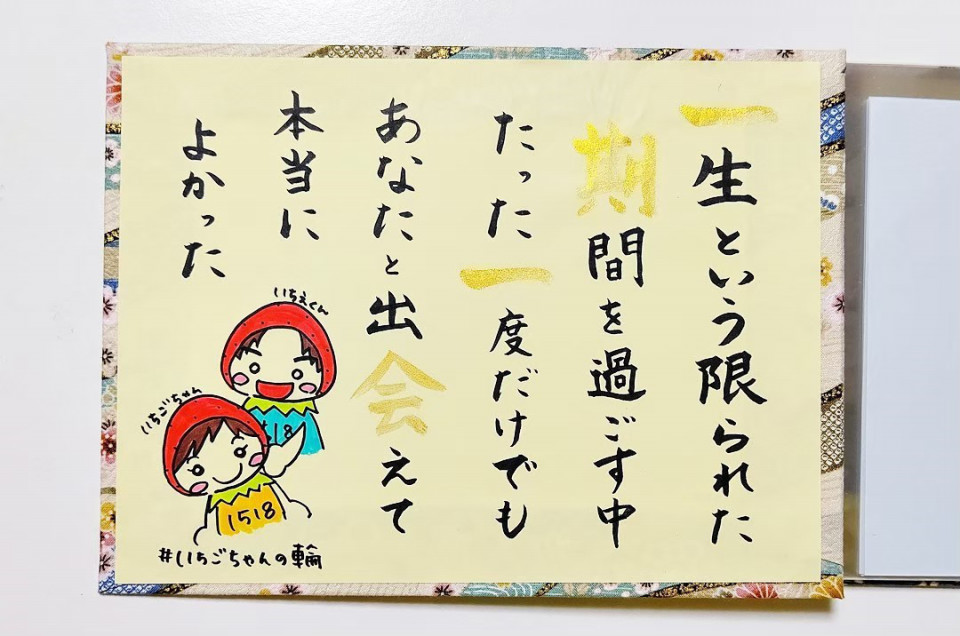 一生という限られた
期間を過ごす中
たった一度だけでも
あなたと出会えて
本当に
よかった
いちえくん
いちごちゃん
1518
1518
#いちごちゃんの輪